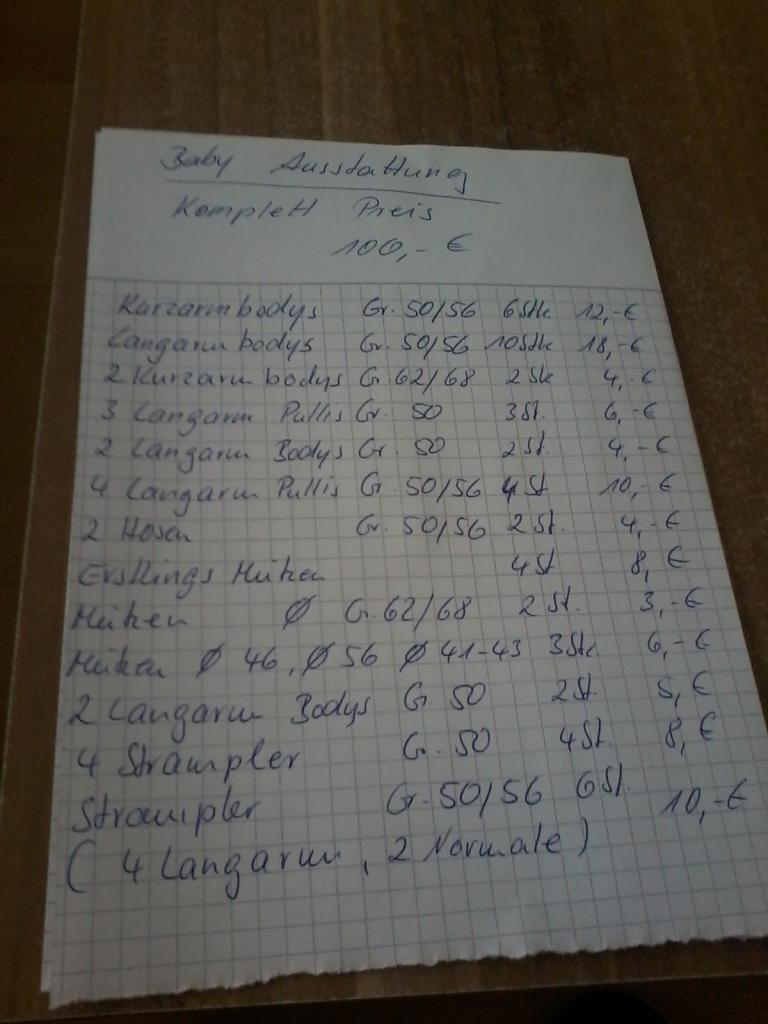 Baby Ausstattung
Komplett Preis
100,- €
Kurzarmbodys Gr. 50/56 6Stk 12,-€
Langarmbodys Gr. 50/56 10Stk 18,-€
2 Kurzarmbodys Gr. 62/68 2 Stk 4,-€
3 Langarm Pullis Gr. 50 3St. 6,-€
2 Langarm Bodys Gr. 50 2St. 4,-€
4 Langarm Pullis Gr. 50/56 4St 10,-€
2 Hosen Gr. 50/56 2St. 4,-€
Erstlings Mützen 4St 8, €
Mützen Ø Gr. 62/68 2 St. 3,-€
Mützen Ø 46, Ø 56 Ø 41-43 3Stk 6,-€
2 Langarm Bodys Gr 50 2St. 5, €
4 Strampler Gr. 50 4St. 8, €
Strampler Gr. 50/56 6St. 10,-€
( 4 Langarm, 2 Normale )